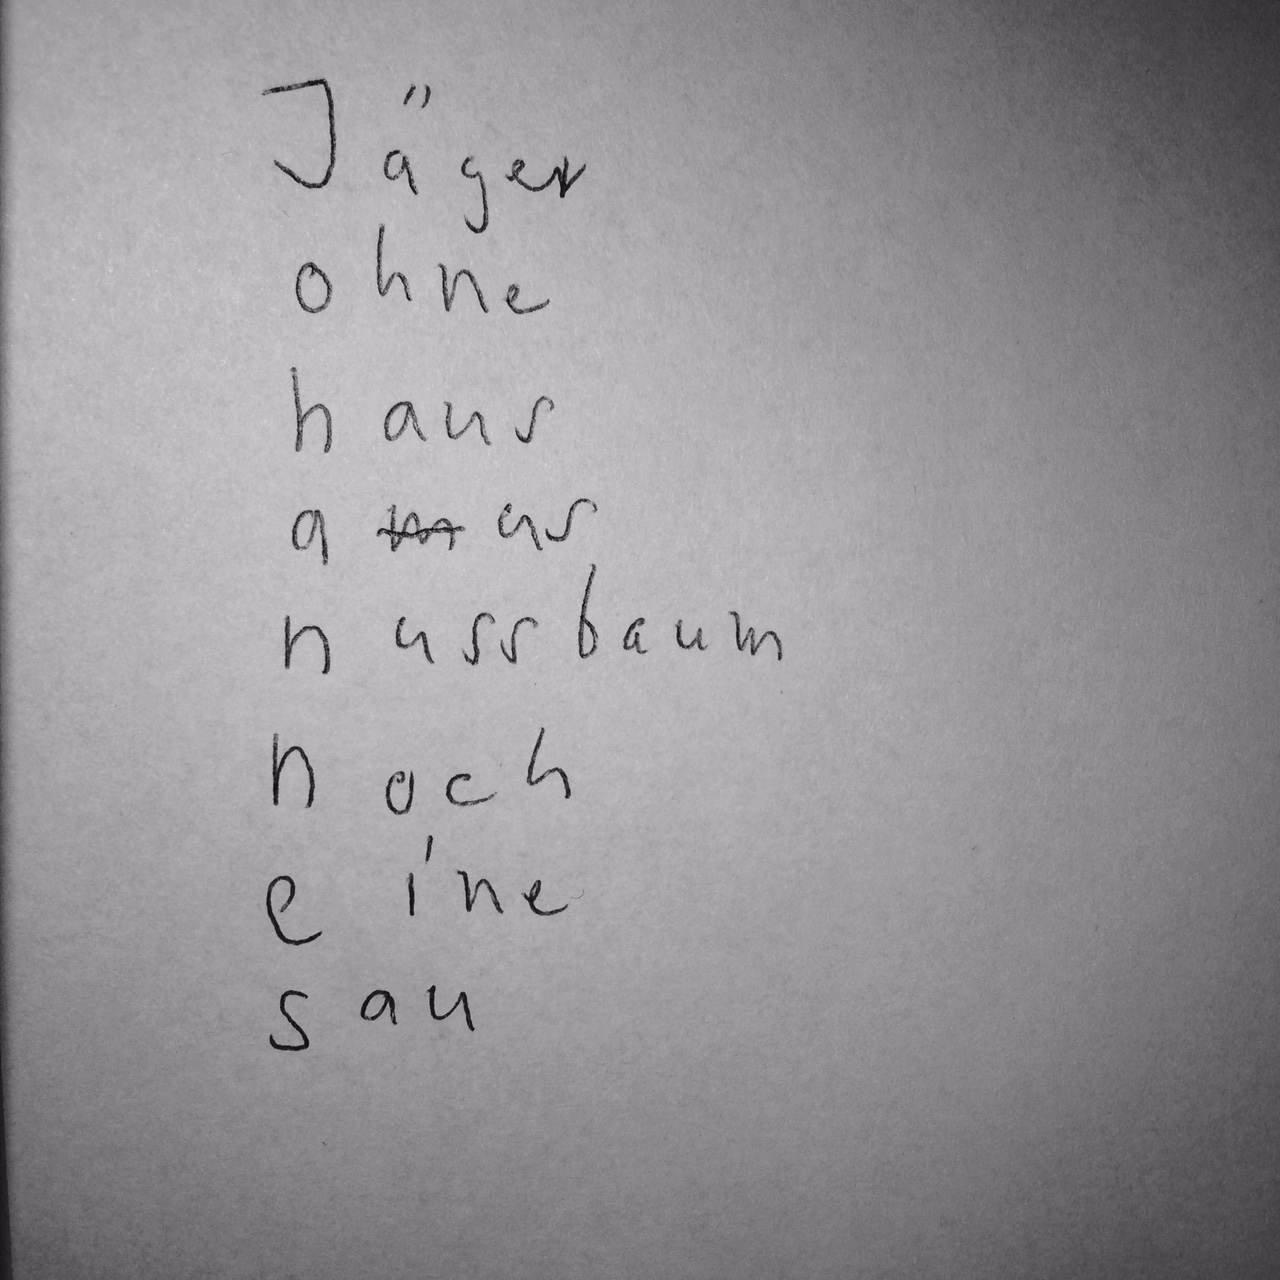 Jäger
ohne
haus
aus
nussbaum
noch
eine
sau